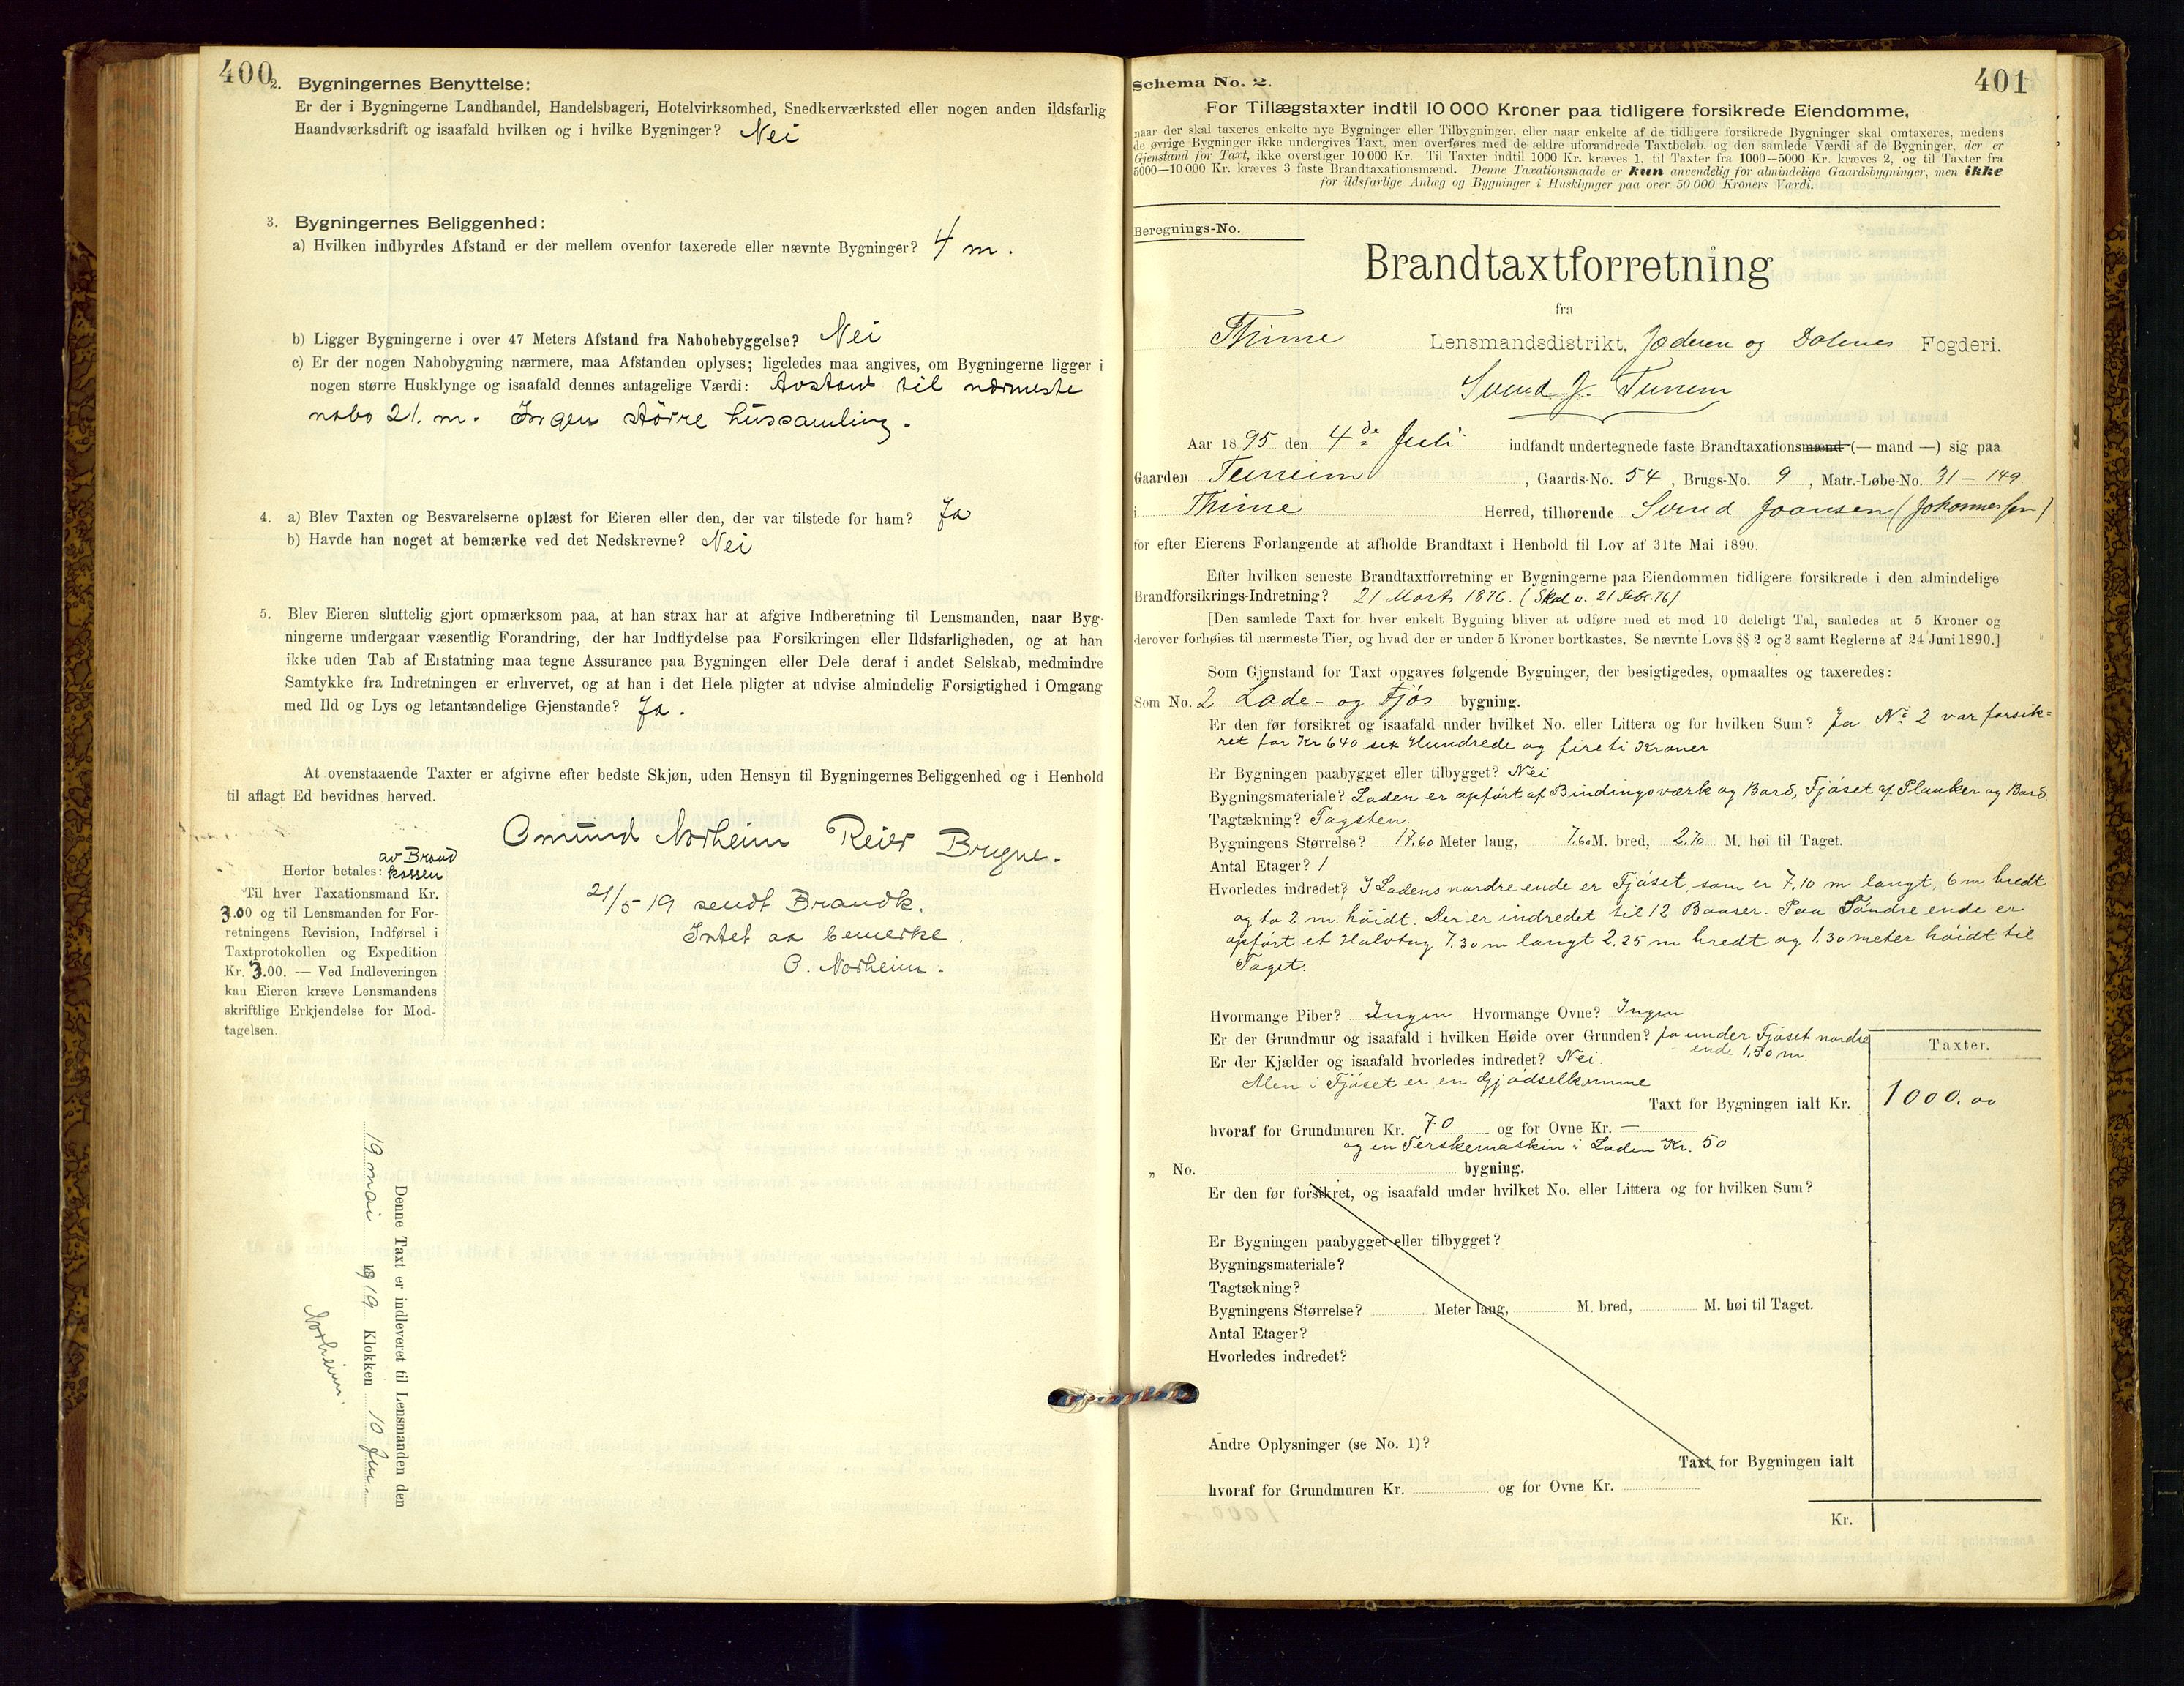 400
2. Bygningernes Benyttelse:
Er der i Bygningerne Landhandel, Handelsbageri, Hotelvirksomhed, Snedkerværksted eller nogen anden ildsfarlig
Haandværksdrift og isaafald hvilken og i hvilke Bygninger? Nei
3. Bygningernes Beliggenhed:
a) Hvilken indbyrdes Afstand er der mellem ovenfor taxerede eller nævnte Bygninger? 4 m.
b) Ligger Bygningerne i over 47 Meters Afstand fra Nabobebyggelse? Nei
c) Er der nogen Nabobygning nærmere, maa Afstanden oplyses; ligeledes maa angives, om Bygningerne ligger i
nogen større Husklynge og isaafald dennes antagelige Værdi: Avstand til nærmeste
nabo 21. m. Ingen større hussamling.
4. a) Blev Taxten og Besvarelserne oplæst for Eieren eller den, der var tilstede for ham? Ja
b) Havde han noget at bemærke ved det Nedskrevne? Nei
5. Blev Eieren sluttelig gjort opmærksom paa, at han strax har at afgive Indberetning til Lensmanden, naar Byg-
ningerne undergaar væsentlig Forandring, der har Indflydelse paa Forsikringen eller Ildsfarligheden, og at han
ikke uden Tab af Erstatning maa tegne Assurance paa Bygningen eller Dele deraf i andet Selskab, medmindre
Samtykke fra Indretningen er erhvervet, og at han i det Hele pligter at udvise almindelig Forsigtighed i Omgang
med Ild og Lys og letantændelige Gjenstande? Ja.
At ovenstaaende Taxter er afgivne efter bedste Skjøn, uden Hensyn til Bygningernes Beliggenhed og i Henhold
til aflagt Ed bevidnes herved.
Omund Norheim Reier Brugne.
av Brand
Herfor betales: kassen
Til hver Taxationsmand Kr.
3.00 og til Lensmanden for For-
retningens Revision, Indførsel i
Taxtprotokollen og Expedition
Kr. 3.00. — Ved Indleveringen
kan Eieren kræve Lensmandens
skriftlige Erkjendelse for Mod-
tagelsen.
21/5-19 sendt Brandk.
Intet aa bemerke.
O. Norheim.
Denne Taxt er indleveret til Lensmanden den
19 mai 1919 Klokken 10 fm.
Norheim.
401
Schema No. 2.
For Tillægstaxter indtil 10 000 Kroner paa tidligere forsikrede Eiendomme,
naar der skal taxeres enkelte nye Bygninger eller Tilbygninger, eller naar enkelte af de tidligere forsikrede Bygninger skal omtaxeres, medens
de øvrige Bygninger ikke undergives Taxt, men overføres med de ældre uforandrede Taxtbeløb, og den samlede Værdi af de Bygninger, der er
Gjenstand for Taxt, ikke overstiger 10 000 Kr. Til Taxter indtil 1000 Kr. kræves 1, til Taxter fra 1000—5000 Kr. kræves 2, og til Taxter fra
5000—10 000 Kr. kræves 3 faste Brandtaxationsmænd. Denne Taxationsmaade er kun anvendelig for almindelige Gaardsbygninger, men ikke
for ildsfarlige Anlæg og Bygninger i Husklynger paa over 50 000 Kroners Værdi.
Beregnings-No.
Brandtaxtforretning
fra
Thime Lensmandsdistrikt, Jæderen og Dalenes Fogderi.
Svend J. Tunem
Aar 1895 den 4de Juli indfandt undertegnede faste Brandtaxationsmænd (— mand —) sig paa
Gaarden Tunheim, Gaards-No. 54, Brugs-No. 9, Matr.-Løbe-No. 31 – 149
i Thime Herred, tilhørende Svend Joansen (Johannessen)
for efter Eierens Forlangende at afholde Brandtaxt i Henhold til Lov af 31te Mai 1890.
Efter hvilken seneste Brandtaxtforretning er Bygningerne paa Eiendommen tidligere forsikrede i den almindelige
Brandforsikrings-Indretning? 21 Marts 1876. (Skal v. 21 Febr. 76)
[Den samlede Taxt for hver enkelt Bygning bliver at udføre med et med 10 deleligt Tal, saaledes at 5 Kroner og
derover forhøies til nærmeste Tier, og hvad der er under 5 Kroner bortkastes. Se nævnte Lovs §§ 2 og 3 samt Reglerne af 24 Juni 1890.]
Som Gjenstand for Taxt opgaves følgende Bygninger, der besigtigedes, opmaaltes og taxeredes:
Som No. 2 Lade- og Fjøs bygning.
Er den før forsikret og isaafald under hvilket No. eller Littera og for hvilken Sum? Ja No 2 var forsik=
ret for Kr 640 sex Hundrede og fireti Kroner
Er Bygningen paabygget eller tilbygget? Nei
Bygningsmateriale? Laden er opført af Bindingsværk og Bord, Fjøset af Planker og Bord
Tagtækning? Tagsten.
Bygningens Størrelse? 17.60 Meter lang, 7.60 M. bred, 2.70 M. høi til Taget.
Antal Etager? 1
Hvorledes indredet? I Ladens nordre ende er Fjøset, som er 7.10 m langt, 6 m. bredt
og to 2 m. høidt. Der er indredet til 12 Baaser. Paa Søndre ende er
opført et Halvtag 7.30 m langt 2.25 m bredt og 1.30 meter høidt til
Taget.
Hvormange Piber? Ingen Hvormange Ovne? Ingen
Er der Grundmur og isaafald i hvilken Høide over Grunden? Ja under Fjøset nordre
ende 1,50 m.
Er der Kjælder og isaafald hvorledes indredet? Nei.
Men i Fjøset er en Gjødselkumme
Taxter.
Taxt for Bygningen ialt Kr. 1000.00
hvoraf for Grundmuren Kr. 70 og for Ovne Kr. —
og en Terskemaskin i Laden Kr. 50
„ No. bygning.
Er den før forsikret, og isaafald under hvilket No. eller Littera og for hvilken Sum?
Er Bygningen paabygget eller tilbygget?
Bygningsmateriale?
Tagtækning?
Bygningens Størrelse? Meter lang, M. bred, M. høi til Taget.
Antal Etager?
Hvorledes indredet?
Andre Oplysninger (se No. 1)?
Taxt for Bygningen ialt
hvoraf for Grundmuren Kr. og for Ovne Kr.
Kr.